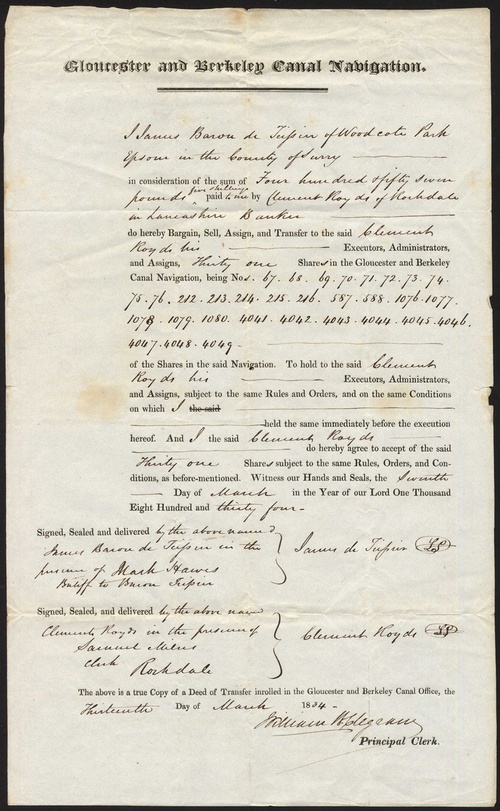 Gloucester and Berkeley Canal Navigation.
I James Baron de Teissier of Woodcote Park
Epsom in the County of Surry
in consideration of the sum of Four hundred & fifty seven
pounds five shillings paid to me by Clement Royds of Rochdale
in Lancashire Banker
do hereby Bargain, Sell, Assign, and Transfer to the said Clement
Royds his Executors, Administrators,
and Assigns, Thirty one Shares in the Gloucester and Berkeley
Canal Navigation, being Nos. 67. 68. 69. 70. 71. 72. 73. 74.
75. 76. 212. 213. 214. 215. 216. 587. 588. 1076. 1077.
1078. 1079. 1080. 4041. 4042. 4043. 4044. 4045. 4046.
4047. 4048. 4049
of the Shares in the said Navigation. To hold to the said Clement
Royds his Executors, Administrators,
and Assigns, subject to the same Rules and Orders, and on the same Conditions
on which I the said
held the same immediately before the execution
hereof. And I the said Clement Royds
do hereby agree to accept of the said
Thirty one Shares subject to the same Rules, Orders, and Con-
ditions, as before-mentioned. Witness our Hands and Seals, the Seventh
Day of March in the Year of our Lord One Thousand
Eight Hundred and thirty four
Signed, Sealed and delivered by the above named
James Baron de Teissier in the
presence of Mark Hawes
Bailiff to Baron Teissier
James de Teissier LS
Signed, Sealed, and delivered by the above named
Clement Royds in the presence of
Samuel
Clerk Rochdale
Clement Royds LS
The above is a true Copy of a Deed of Transfer inrolled in the Gloucester and Berkeley Canal Office, the
Thirteenth Day of March 1834
William B Clegram
Principal Clerk.